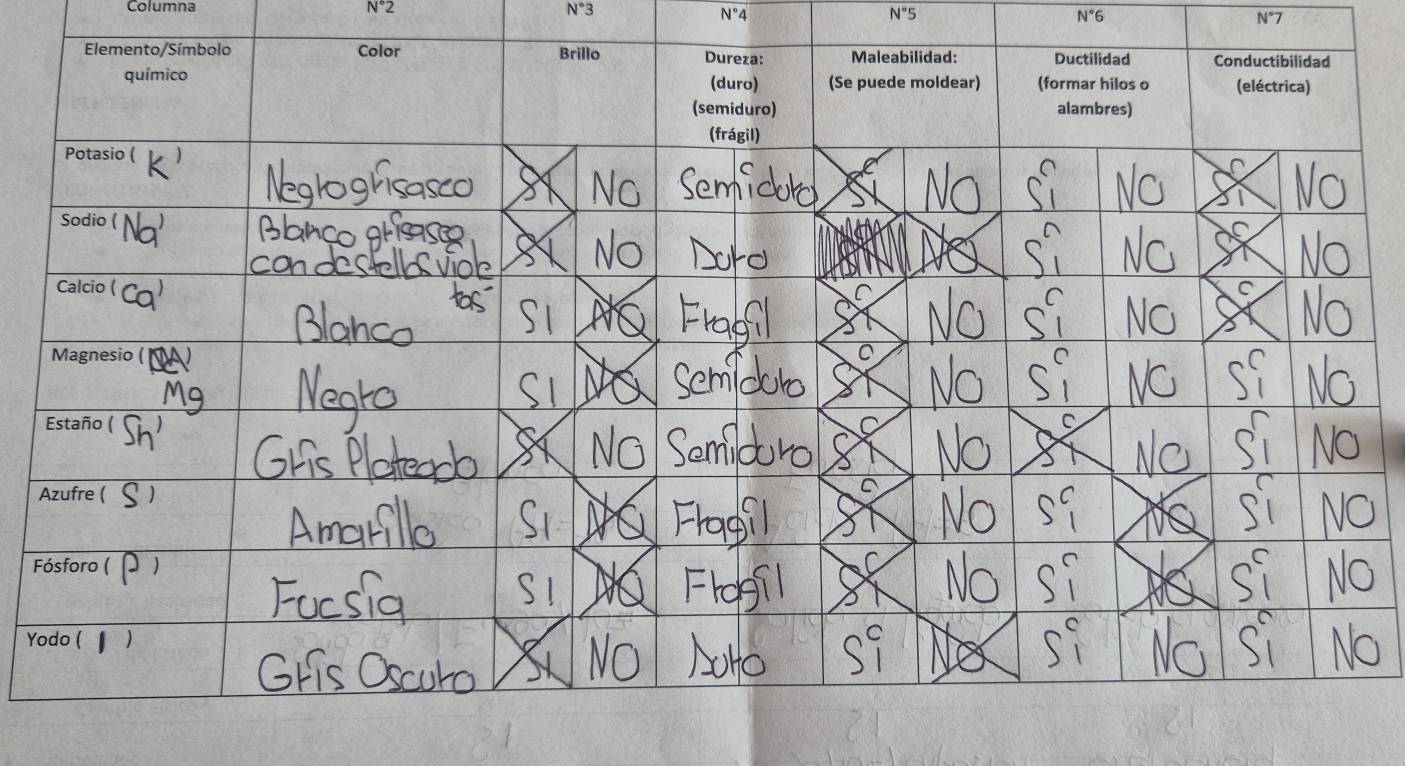 Columna N°2 N°3 N°4 N°5 N°6 N°7
Elemento/Símbolo químico Color Brillo Dureza: (duro) (semiduro) (frágil) Maleabilidad: (Se puede moldear) Ductilidad (formar hilos o alambres) Conductibilidad (eléctrica)
Potasio ( K ) Negrogrisasco SI NO Semiduro Si NO Si NO Si NO
Sodio ( Na ) Blanco grisaseo con destellos violetas SI NO Duro NO Si NO Si NO
Calcio ( Ca ) Blanco SI NO Fragil Si NO Si NO Si NO
Magnesio ( ) Mg Negro SI NO Semiduro Si NO Si NO Si NO
Estaño ( Sn ) Gris Plateado SI NO Semiduro Si NO Si NO Si NO
Azufre ( S ) Amarillo SI NO Fragil Si NO Si NO Si NO
Fósforo ( P ) Fucsia SI NO Fragil Si NO Si NO Si NO
Yodo ( I ) Gris Oscuro Si NO Duro Si NO Si NO Si NO